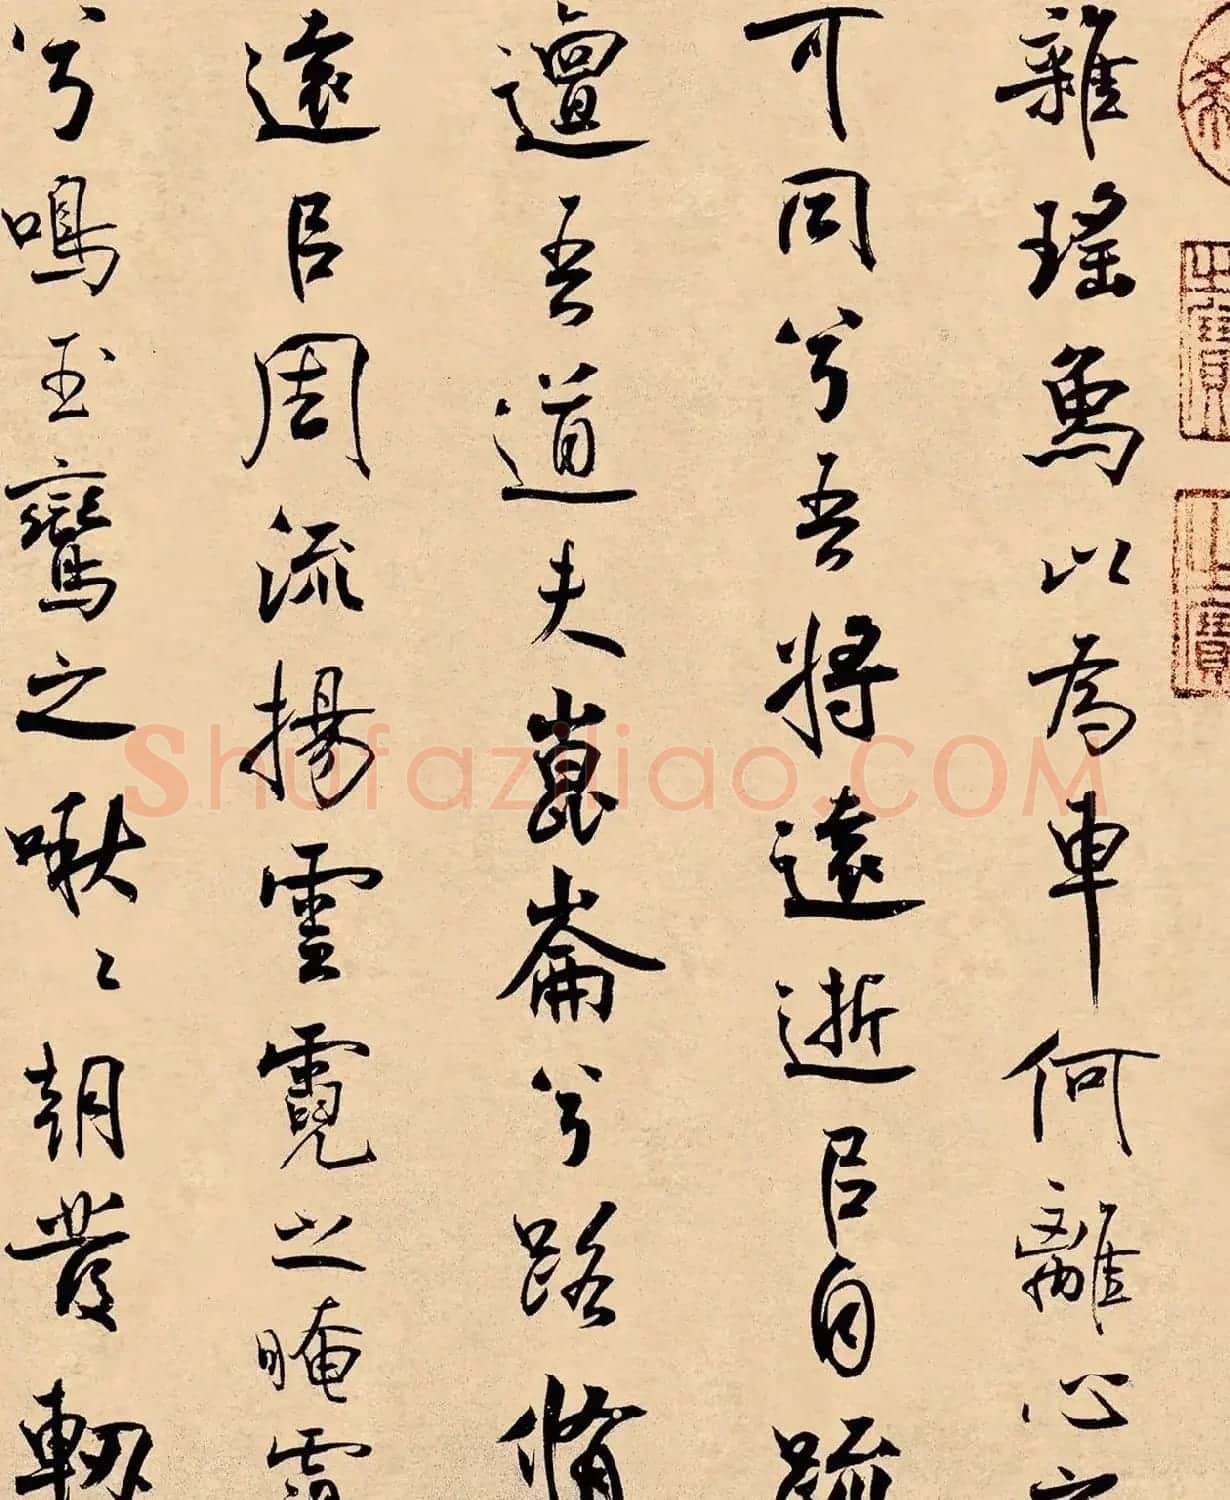 雜瑤象以為車何離心
可同兮吾將遠逝㠯自疏
邅吾道夫崑崙兮路脩
遠㠯周流揚雲霓之晻
兮鳴玉鸞之啾〻朝發軔
Shufaziliao.COM